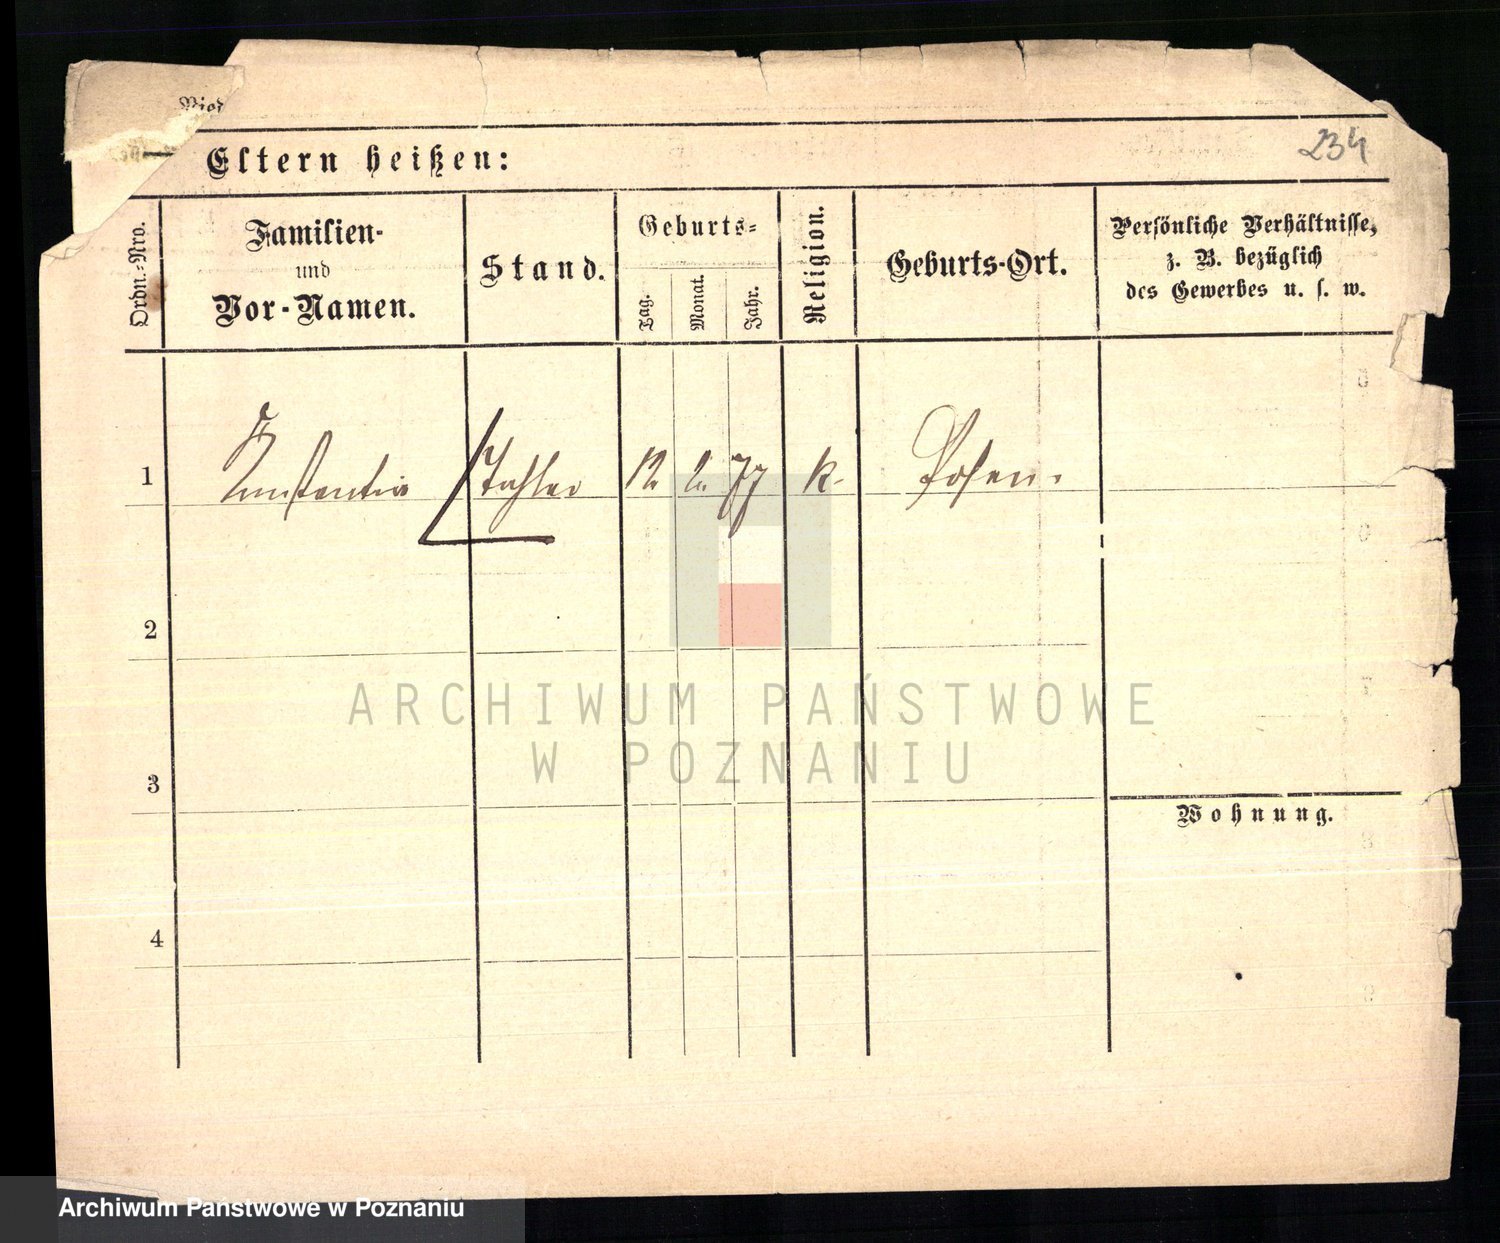 234
Eltern heißen:
Ordn.-Nro.
Familien-
und
Vor-Namen.
Stand.
Geburts-
Tag.
Monat.
Jahr.
Religion.
Geburts-Ort.
Persönliche Verhältnisse,
z. B. bezüglich
des Gewerbes u. s. w.
1 Konstantin 12 77 k. Posen.
2
3
Wohnung.
4
ARCHIWUM PAŃSTWOWE
W POZNANIU
Archiwum Państwowe w Poznaniu